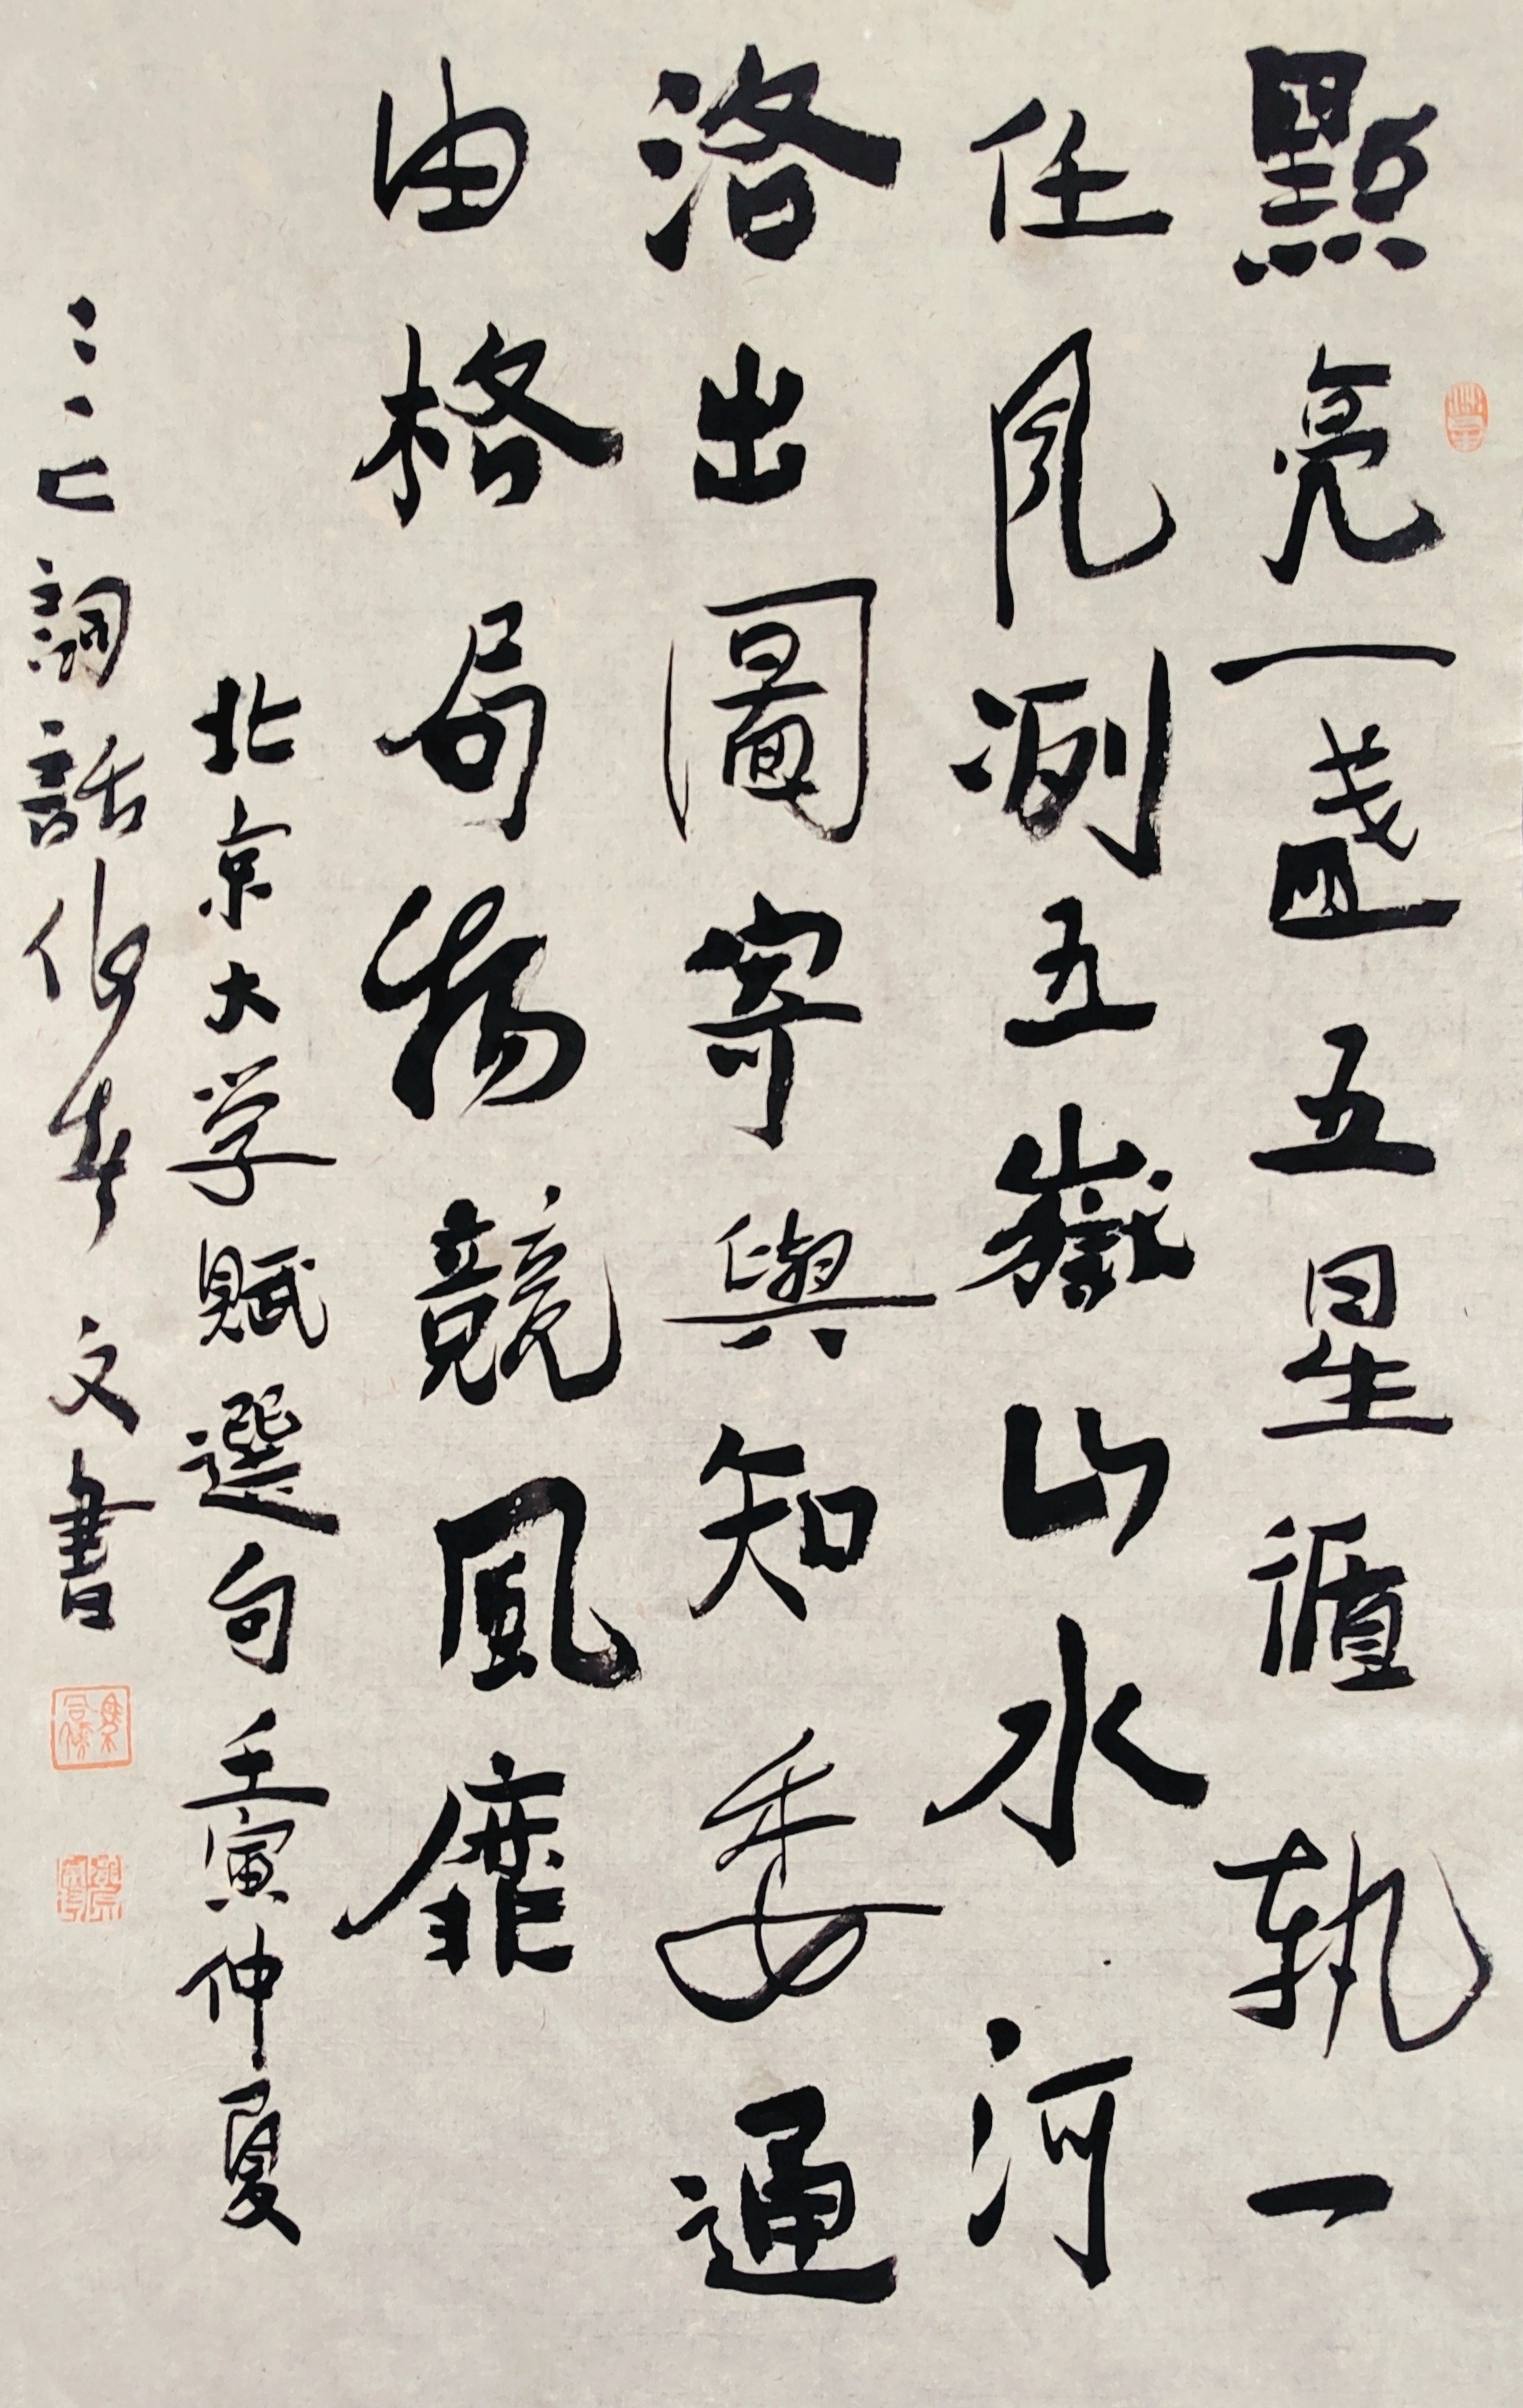 點亮一盞五星循執一
任風冽五嶽山水河
洛出圖寄與知委通
由格局物競風靡
北京大学賦選句壬寅仲夏
詞話作者文書